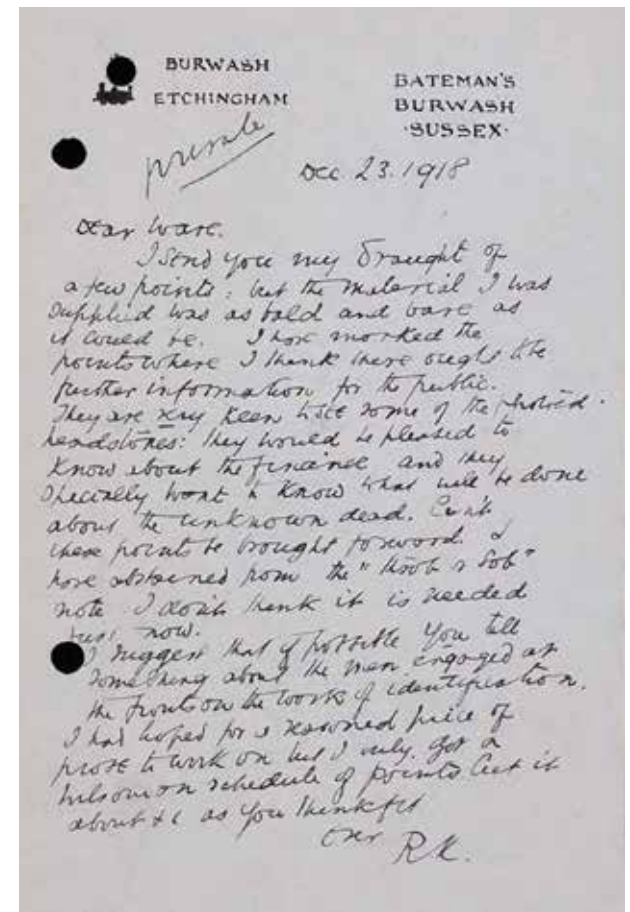 BURWASH
ETCHINGHAM
BATEMAN'S
BURWASH
·SUSSEX·
private
Dec. 23. 1918
Dear Ware.
I send you my draught of
a few points: but the material I was
supplied was as bald and bare as
it could be. I have marked the
points where I think there ought to be
further information for the public.
They are very keen to see some of the
headstones: they would be pleased to
know about the finance and they
specially want to know what will be done
about the unknown dead. Can't
these points be brought forward. I
have abstained from the "throb & sob"
note I don't think it is needed
just now.
I suggest that if possible you tell
something about the men engaged at
the front on the work of identification.
I had hoped for a reasoned piece of
prose to work on but I only got a
Wilsonian schedule of points Cut it
about &c as you think fit
Ever
R.K.